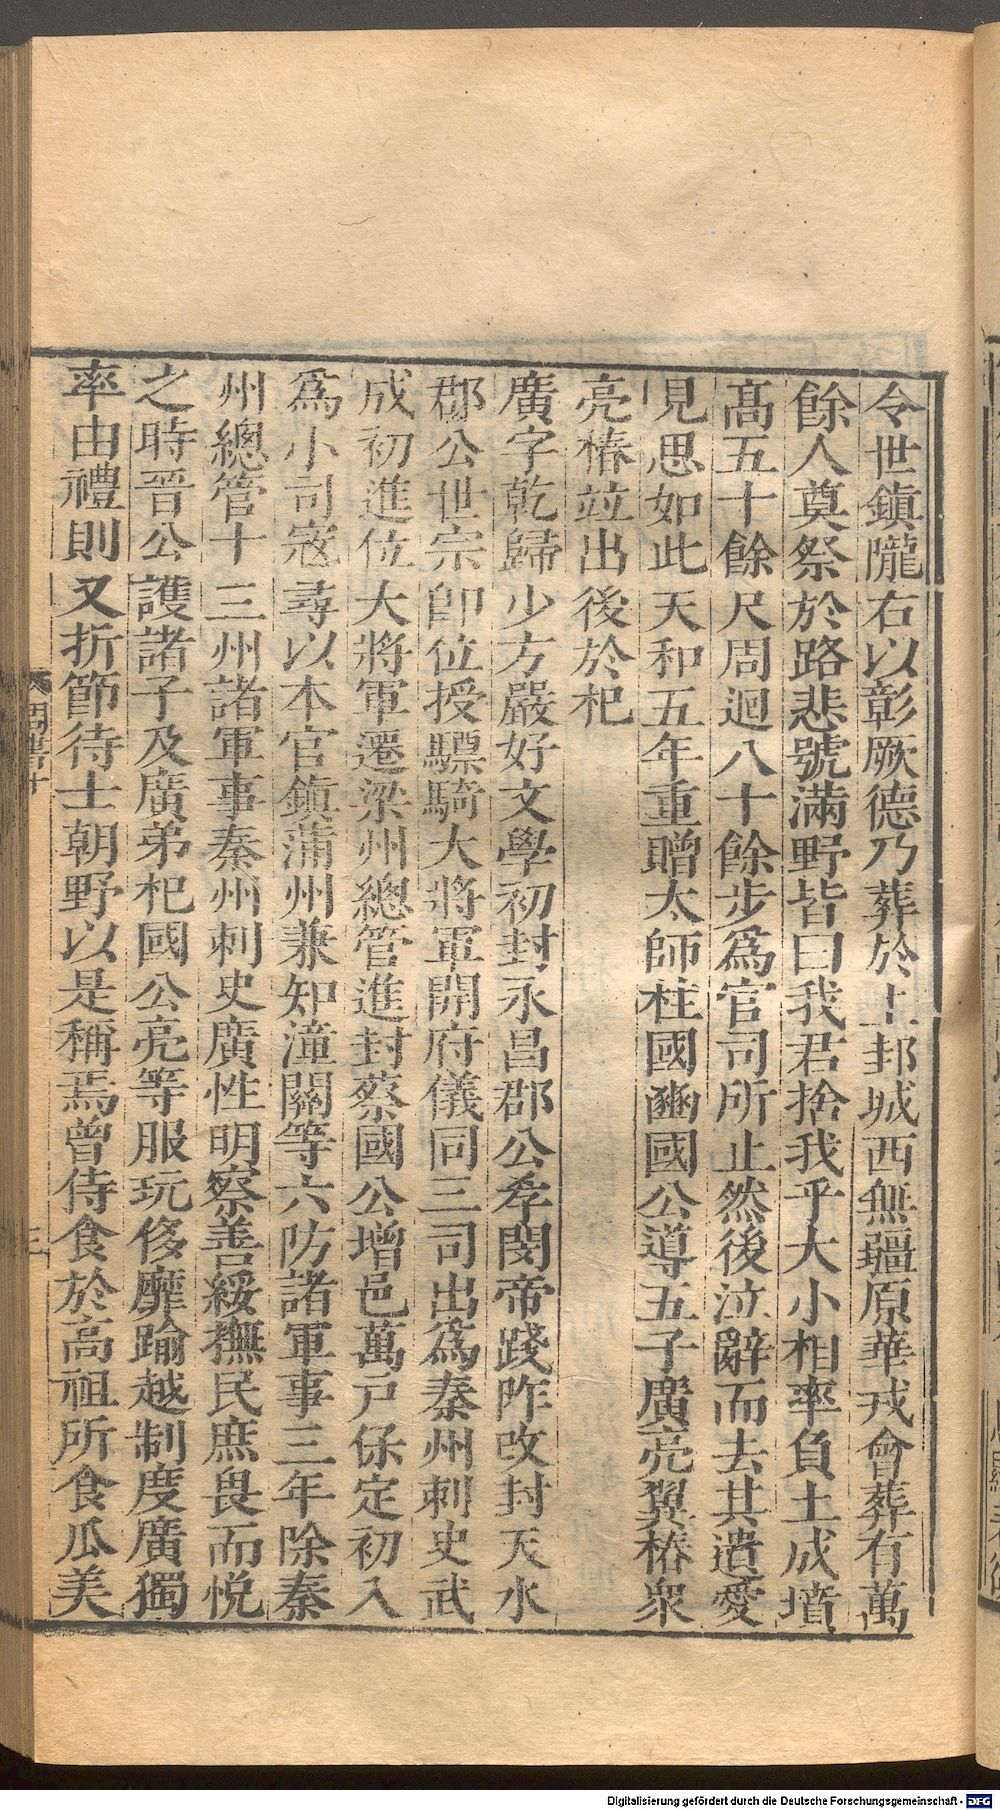 令世鎮隴右以彰厥德乃葬於上邽城西無疆原華戎會葬有萬
餘人奠祭於路悲號滿野皆曰我君捨我乎大小相率負土成墳
髙五十餘尺周迴八十餘步爲官司所止然後泣辭而去其遺愛
見思如此天和五年重贈太師柱國豳國公導五子廣亮翼椿衆
亮椿竝出後於𣏌
廣字乾歸少方嚴好文學初封永昌郡公孝閔帝踐阼改封天水
郡公世宗卽位授驃騎大將軍開府儀同三司出爲秦州刺史武
成初進位大將軍遷梁州總管進封蔡國公增邑萬戸保定初入
爲小司寇尋以本官鎮蒲州兼知潼關等六防諸軍事三年除秦
州總管十三州諸軍事秦州刺史廣性明察善綏撫民庶畏而悅
之時晉公護諸子及廣弟杞國公亮等服玩侈靡踰越制度廣獨
率由禮則又折節待士朝野以是稱焉曾侍食於高祖所食瓜美
周書十
三
Digitalisierung gefördert durch die Deutsche Forschungsgemeinschaft - DFG